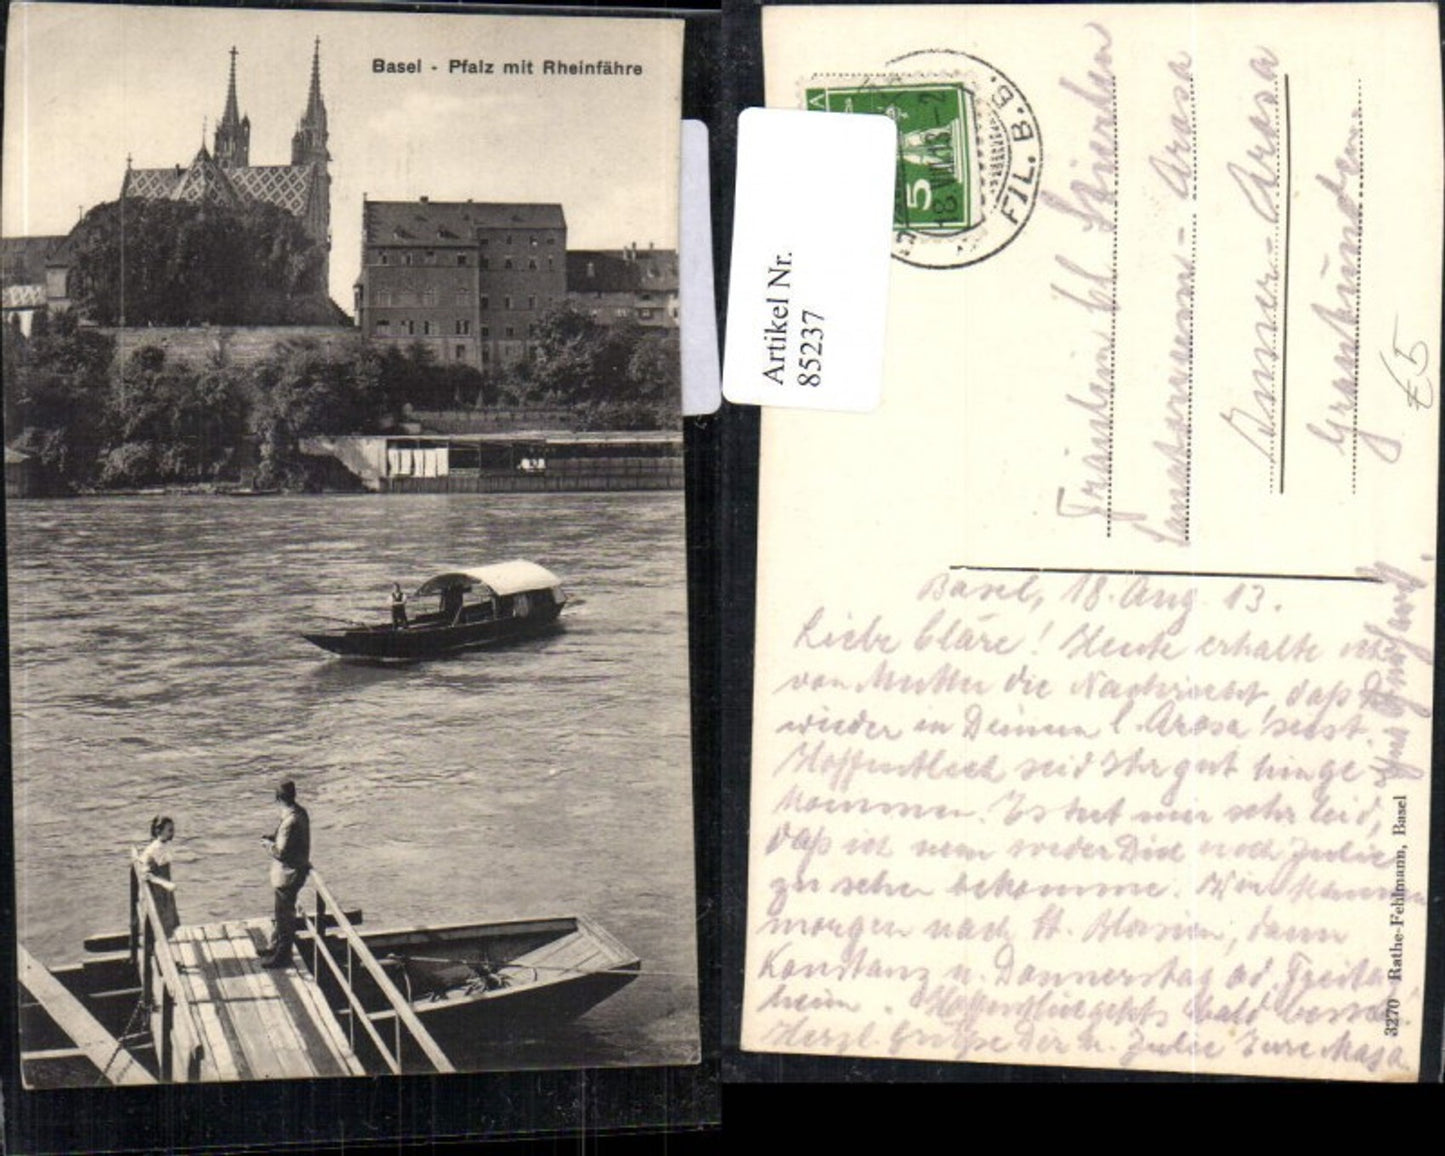 Basel - Pfalz mit Rheinfähre
Artikel Nr.
85237
5
FIL. B.B.
18 VIII 13 - 2
Fräulein Cl.
Arosa
Inner-Arosa
Graubünden.
£5
Basel, 18. Aug. 13.
Liebe Cläre! Heute erhalte ich
von Mutter die Nachricht, daß D
wieder in Deinem l. Arosa seist.
Hoffentlich seid Ihr gut hinge
kommen. Es tut mir sehr leid,
daß ich nun weder Dich noch Julie
zu sehen bekomme. Wir kommen
morgen nach St. Blasien, dann
Konstanz u. Donnerstag od. Freita
heim. Hoffentlich geht's bald besser.
Herzl. Grüße Dir u. Julie Eure
3270 Rathe-Fehlmann, Basel